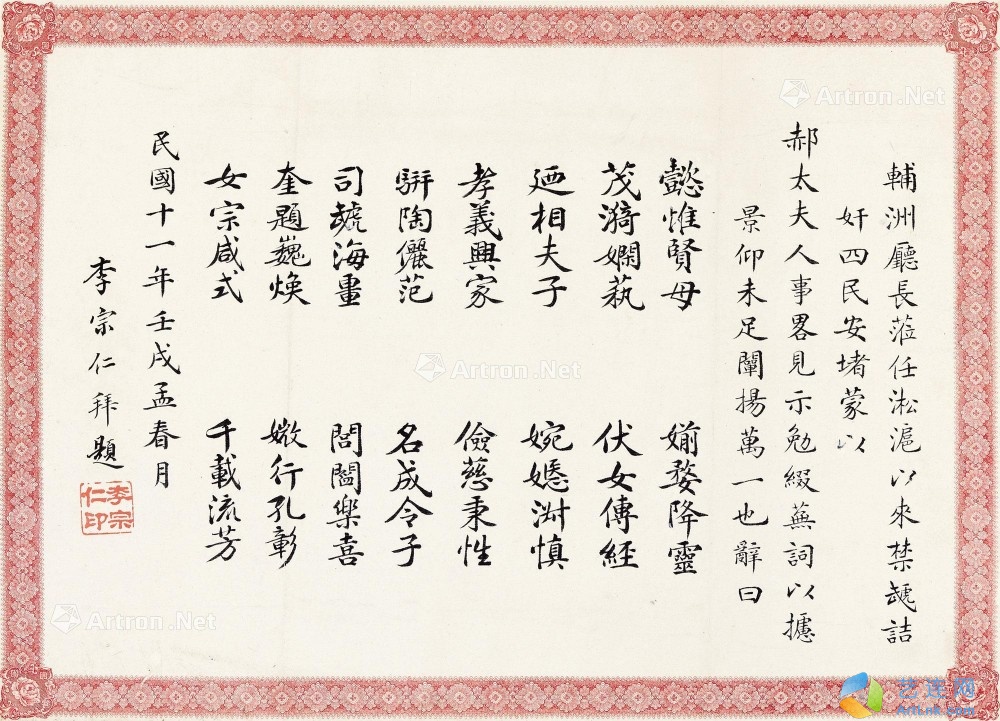 輔洲廳長蒞任淞滬以來禁虣詰
奸四民安堵蒙以
郝太夫人事畧見示勉綴蕪詞以攄
景仰未足闡揚萬一也辭曰
懿惟賢母 媊婺降靈
茂漪嫻蓺 伏女傳經
迺相夫子 婉嫕淑慎
孝義興家 儉慈秉性
駢陶儷范 名成令子
司虣海畺 閭閻樂喜
奎題巍煥 媺行孔彰
女宗咸式 千載流芳
民國十一年壬戌孟春月
李宗仁拜題
李宗仁印
Artron.Net
Artron.Net
Artron.Net
艺连网